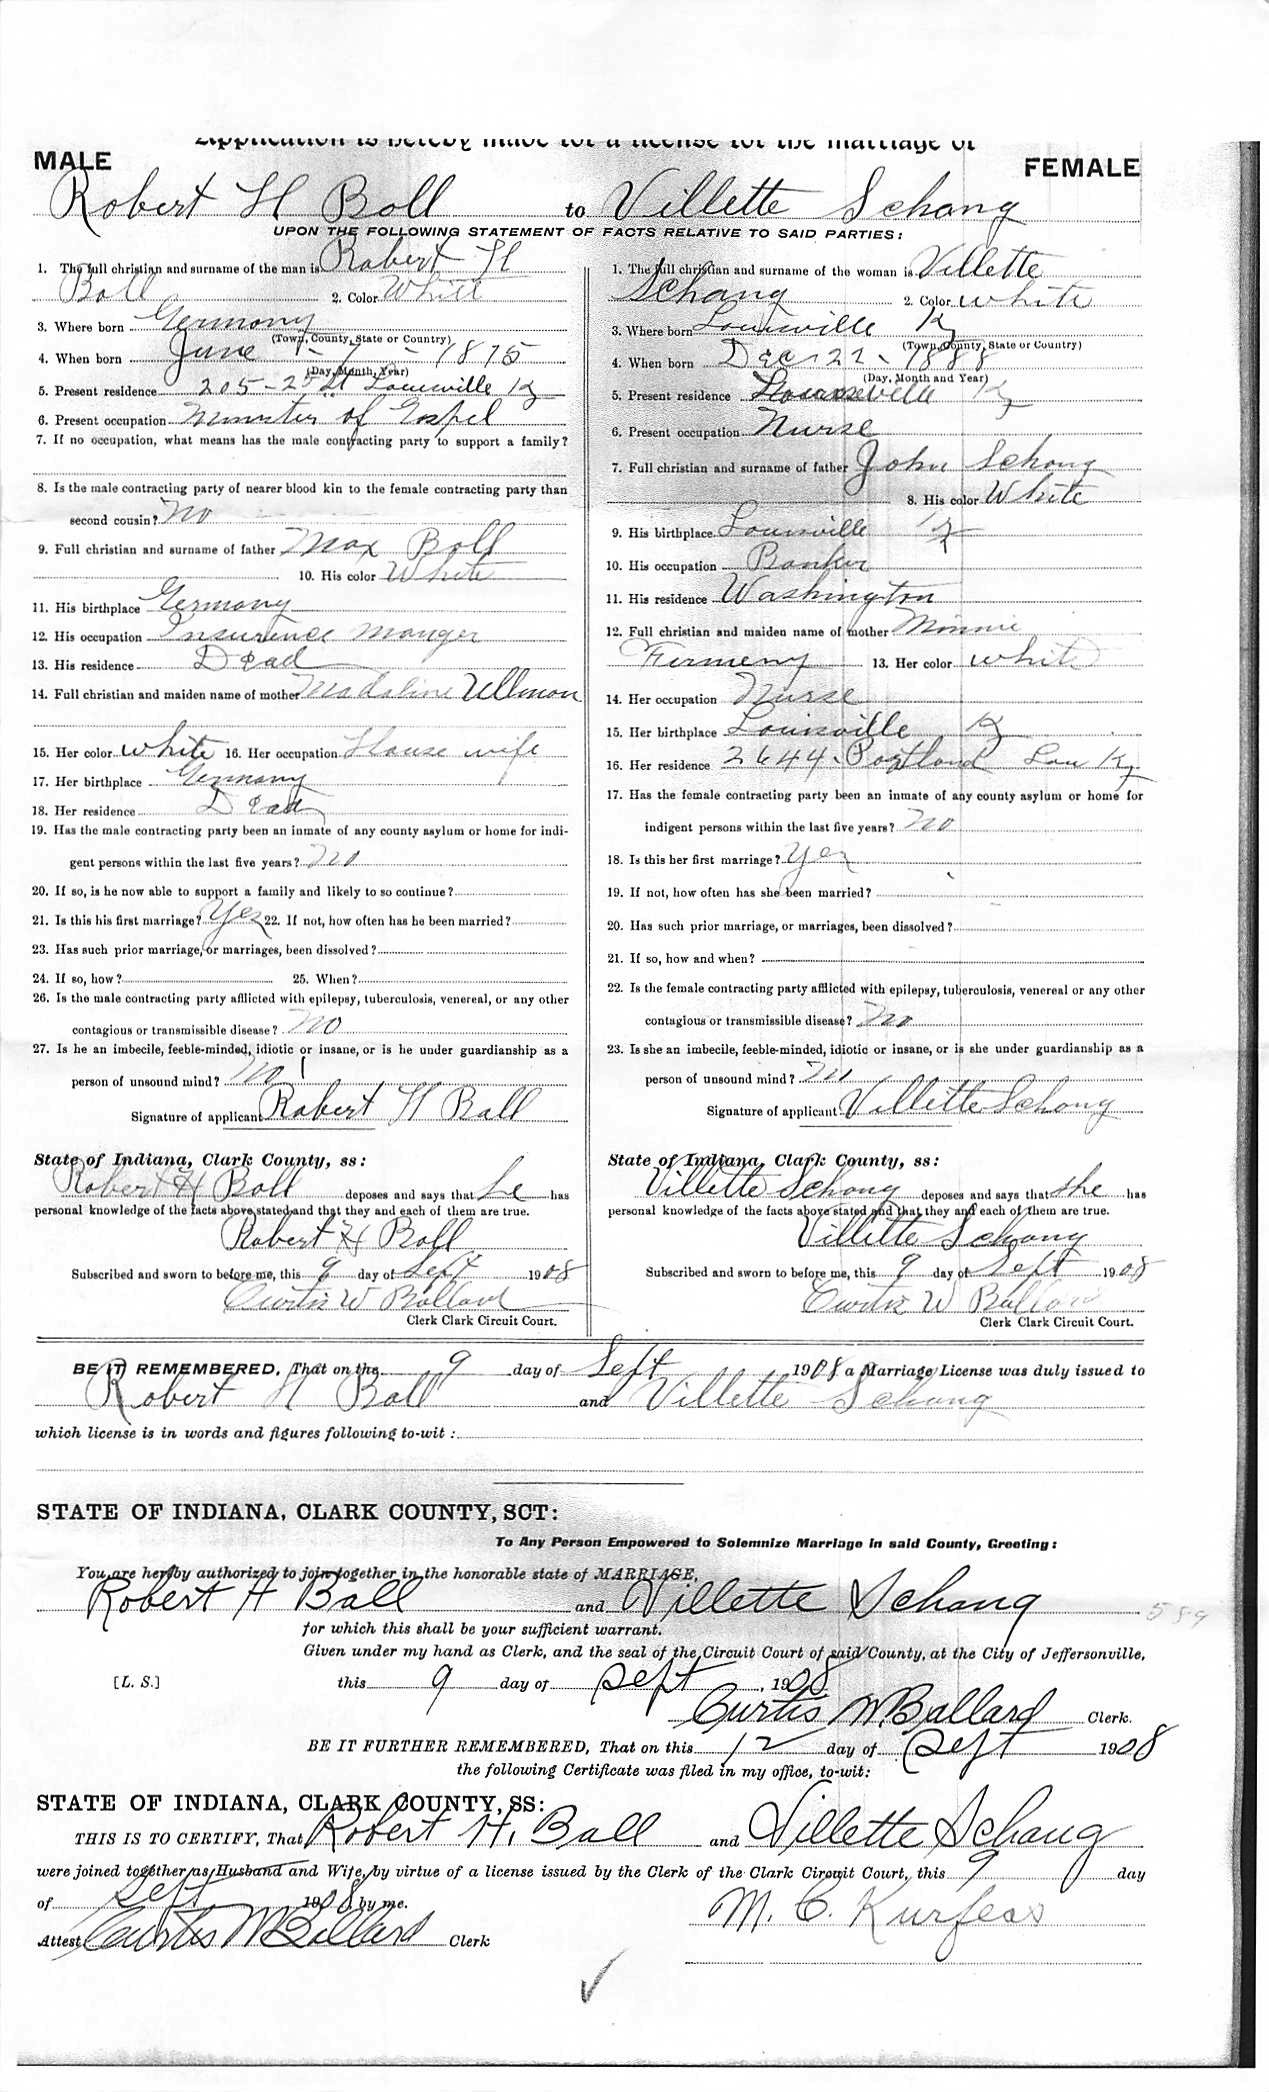 Application is hereby made for a license for the marriage of
MALE
FEMALE
Robert H Boll to Villette Schang
UPON THE FOLLOWING STATEMENT OF FACTS RELATIVE TO SAID PARTIES:
1. The full christian and surname of the man is Robert H
Boll 2. Color White
3. Where born Germany
(Town, County, State or Country)
4. When born June - 7 - 1875
(Day, Month, Year)
5. Present residence 205-25 St Louisville Ky
6. Present occupation Minister of Gospel
7. If no occupation, what means has the male contracting party to support a family?
8. Is the male contracting party of nearer blood kin to the female contracting party than
second cousin? No
9. Full christian and surname of father Max Boll
10. His color White
11. His birthplace Germany
12. His occupation Insurence Manger
13. His residence Dead
14. Full christian and maiden name of mother Madaline Ullman
15. Her color White 16. Her occupation House wife
17. Her birthplace Germany
18. Her residence Dead
19. Has the male contracting party been an inmate of any county asylum or home for indi-
gent persons within the last five years? No
20. If so, is he now able to support a family and likely to so continue?
21. Is this his first marriage? Yes 22. If not, how often has he been married?
23. Has such prior marriage, or marriages, been dissolved?
24. If so, how? 25. When?
26. Is the male contracting party afflicted with epilepsy, tuberculosis, venereal, or any other
contagious or transmissible disease? No
27. Is he an imbecile, feeble-minded, idiotic or insane, or is he under guardianship as a
person of unsound mind? No
Signature of applicant Robert H Boll
State of Indiana, Clark County, ss:
Robert H Boll deposes and says that he has
personal knowledge of the facts above stated and that they and each of them are true.
Robert H Boll
Subscribed and sworn to before me, this 9 day of Sept 1908
Curtis W Ballard
Clerk Clark Circuit Court.
1. The full christian and surname of the woman is Villette
Schang 2. Color White
3. Where born Louisville Ky
(Town, County, State or Country)
4. When born Dec 22 - 1888
(Day, Month and Year)
5. Present residence Louisville Ky
6. Present occupation Nurse
7. Full christian and surname of father John Schang
8. His color White
9. His birthplace Louisville Ky
10. His occupation Banker
11. His residence Washington
12. Full christian and maiden name of mother Minnie
Firmeny 13. Her color White
14. Her occupation Nurse
15. Her birthplace Louisville Ky
16. Her residence 2644 Portland Lou Ky
17. Has the female contracting party been an inmate of any county asylum or home for
indigent persons within the last five years? No
18. Is this her first marriage? Yes
19. If not, how often has she been married?
20. Has such prior marriage, or marriages, been dissolved?
21. If so, how and when?
22. Is the female contracting party afflicted with epilepsy, tuberculosis, venereal or any other
contagious or transmissible disease? No
23. Is she an imbecile, feeble-minded, idiotic or insane, or is she under guardianship as a
person of unsound mind? No
Signature of applicant Villette Schang
State of Indiana, Clark County, ss:
Villette Schang deposes and says that she has
personal knowledge of the facts above stated and that they and each of them are true.
Villette Schang
Subscribed and sworn to before me, this 9 day of Sept 1908
Curtis W Ballard
Clerk Clark Circuit Court.
BE IT REMEMBERED, That on the 9 day of Sept 1908 a Marriage License was duly issued to
Robert H Ball and Villette Schang
which license is in words and figures following to-wit:
STATE OF INDIANA, CLARK COUNTY, SCT:
To Any Person Empowered to Solemnize Marriage in said County, Greeting:
You are hereby authorized to join together in the honorable state of MARRIAGE,
Robert H Ball and Villette Schang 589
for which this shall be your sufficient warrant.
Given under my hand as Clerk, and the seal of the Circuit Court of said County, at the City of Jeffersonville,
[L. S.] this 9 day of Sept, 1908
Curtis W Ballard Clerk.
BE IT FURTHER REMEMBERED, That on this 12 day of Sept 1908
the following Certificate was filed in my office, to-wit:
STATE OF INDIANA, CLARK COUNTY, SS:
THIS IS TO CERTIFY, That Robert H. Ball and Villette Schang
were joined together as Husband and Wife, by virtue of a license issued by the Clerk of the Clark Circuit Court, this 9 day
of Sept 1908 by me.
M. C. Kurfees
Attest Curtis W Ballard Clerk